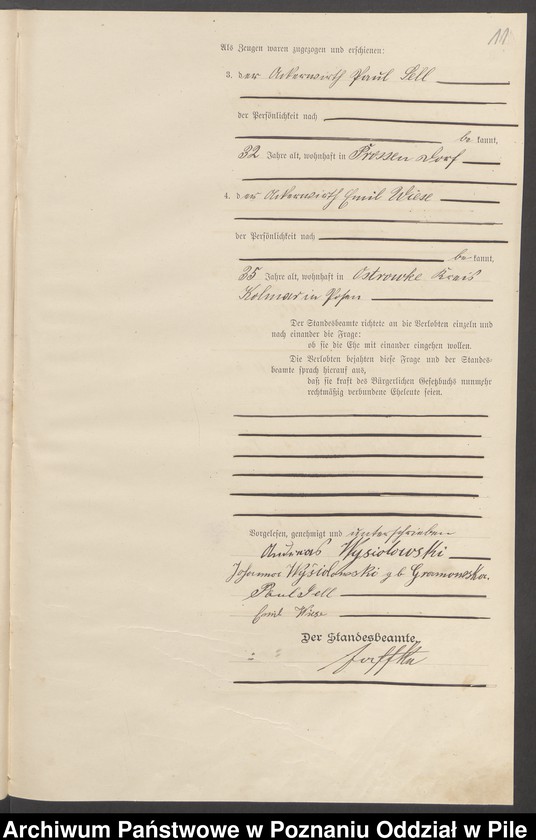 11
Als Zeugen waren zugezogen und erschienen:
3. der Ackerwirth Paul Sell
der Persönlichkeit nach
be kannt,
32 Jahre alt, wohnhaft in Prossen Dorf
4. der Ackerwirth Emil Wiese
der Persönlichkeit nach
be kannt,
35 Jahre alt, wohnhaft in Ostrowke Kreis
Kolmar in Posen
Der Standesbeamte richtete an die Verlobten einzeln und
nach einander die Frage:
ob sie die Ehe mit einander eingehen wollen.
Die Verlobten bejahten diese Frage und der Standes-
beamte sprach hierauf aus,
daß sie kraft des Bürgerlichen Gesetzbuchs nunmehr
rechtmäßig verbundene Eheleute seien.
Vorgelesen, genehmigt und unterschrieben
Andreas Wysiolowski
Wysiolowski gb
Paul Sell
Emil Wiese
Der Standesbeamte.
Archiwum Państwowe w Poznaniu Oddział w Pile